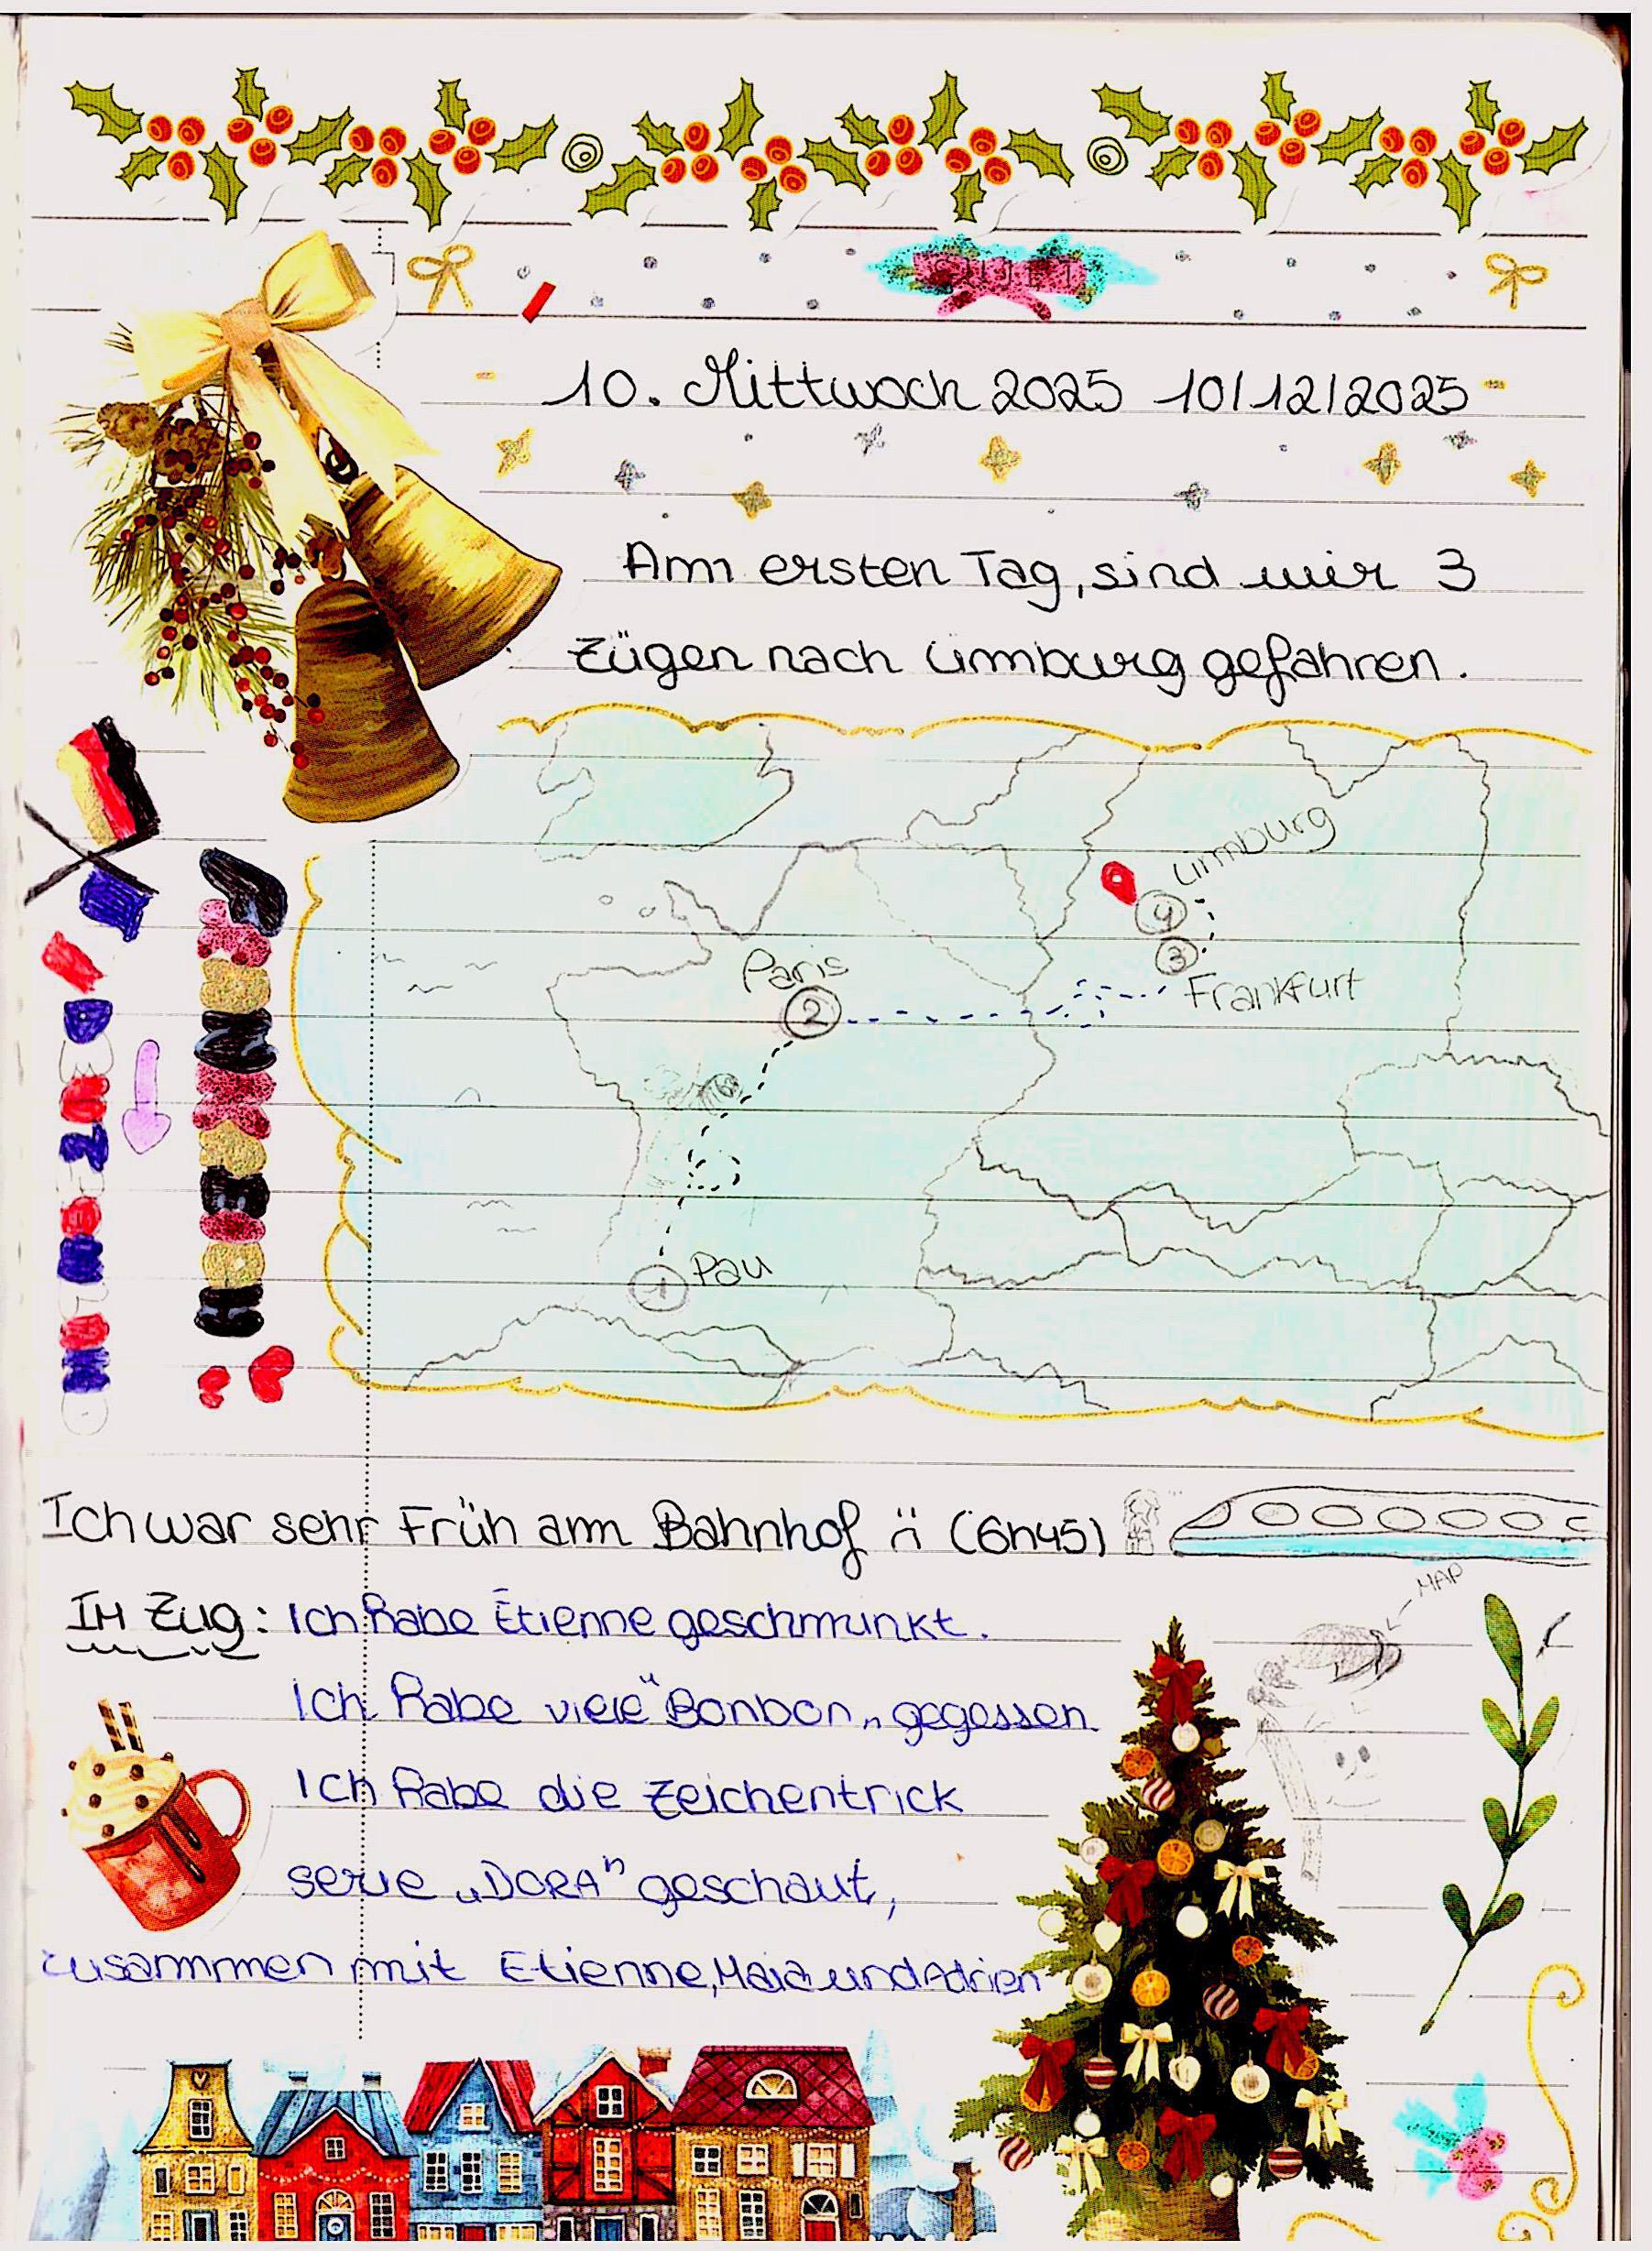 10. Mittwoch 2025 10/12/2025
Am ersten Tag, sind wir 3
Zügen nach Limburg gefahren.
Limburg
4
3
Paris
Frankfurt
2
1 Pau
Ich war sehr Früh am Bahnhof (6h45)
MAP
IM Zug: Ich habe Étienne geschminkt.
Ich habe viele "Bonbon„ gegessen
Ich habe die Zeichentrick
serie „DORA" geschaut,
zusammmen mit Etienne, Maia und Adrien